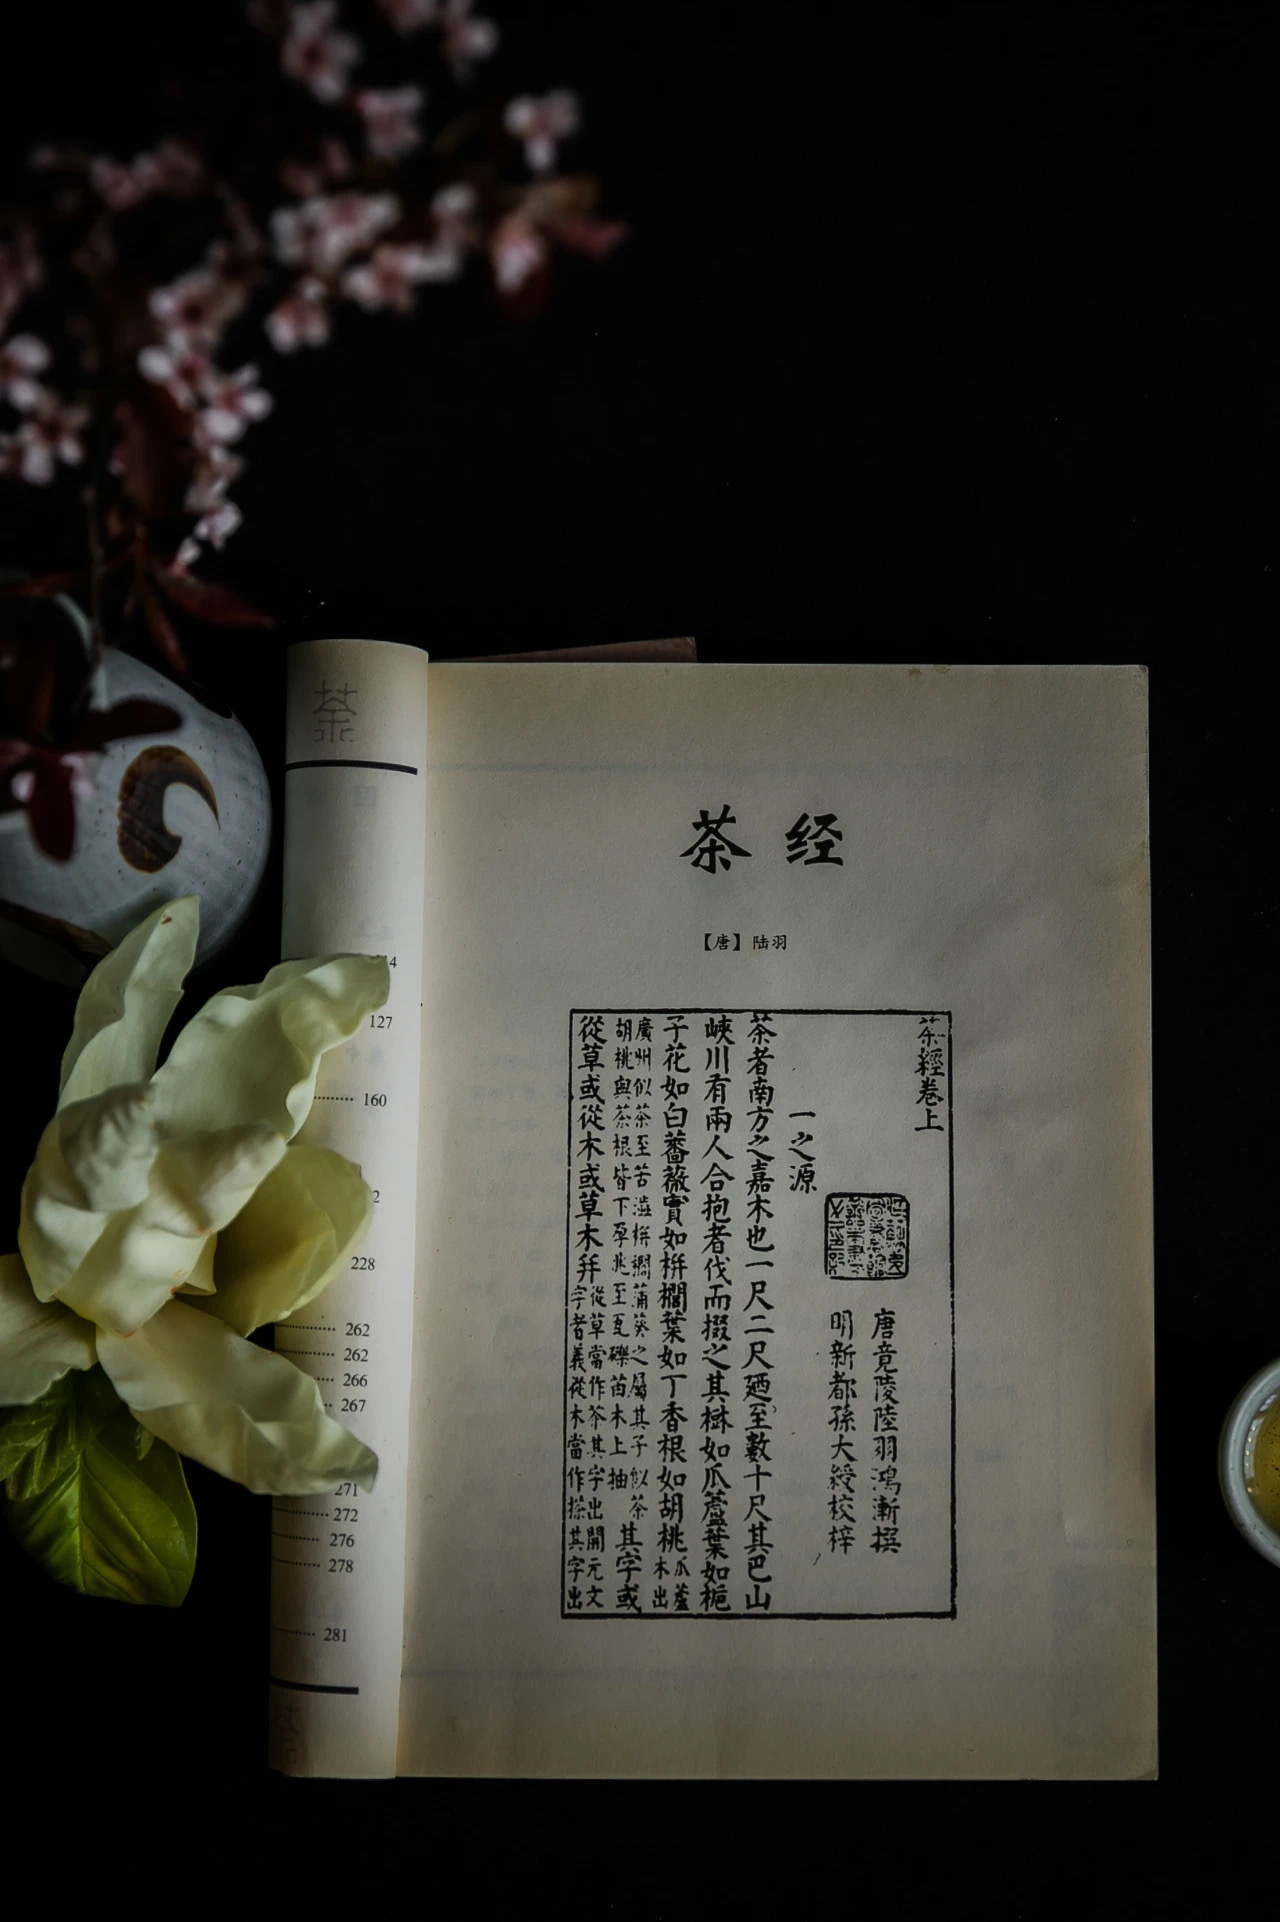 茶
14
127
160
2
228
262
262
266
267
271
272
276
278
281
茶经
【唐】陆羽
茶經卷上
唐竟陵陸羽鴻漸撰
明新都孫大綬校梓
一之源
茶者南方之嘉木也一尺二尺廼至數十尺其巴山
峽川有兩人合抱者伐而掇之其樹如瓜蘆葉如梔
子花如白薔薇實如栟櫚葉如丁香根如胡桃瓜蘆木出
廣州似茶至苦澁栟櫚蒲葵之屬其子似茶胡桃與茶根皆下孕兆至瓦礫苗木上抽其字或
從草或從木或草木并從草當作茶其字出開元文字者義從木當作搽其字出